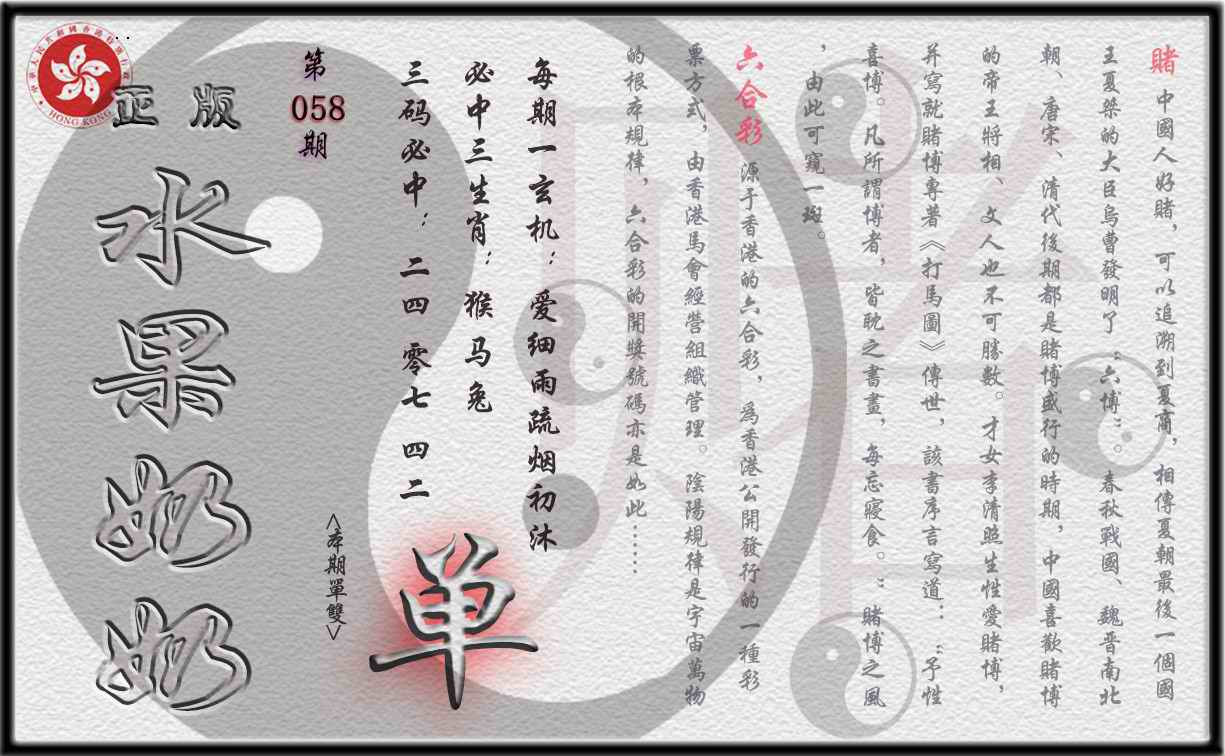 賭 中國人好賭，可以追溯到夏商，相傳夏朝最後一個國
王夏桀的大臣烏曹發明了“六博”。春秋戰國、魏晋南北
朝、唐宋、清代後期都是賭博盛行的時期，中國喜歡賭博
的帝王將相、文人也不可勝數。才女李清照生性愛賭博，
并寫就賭博專著《打馬圖》傳世，該書序言寫道：“予性
喜博。凡所謂博者，皆耽之晝，每忘寢食。”賭博之風
，由此可窺一斑。
六合彩 源于香港的六合彩，爲香港公開發行的一種彩
票方式，由香港馬會經營組織管理。陰陽規律是宇宙萬物
的根本規律，六合彩的開獎號碼亦是如此……
每期一玄机：爱细雨疏烟初沐
必中三生肖：猴马兔
三码必中：二四 零七 四二
单
<本期單雙>
第
058
期
正版
水果奶奶
HONG KONG